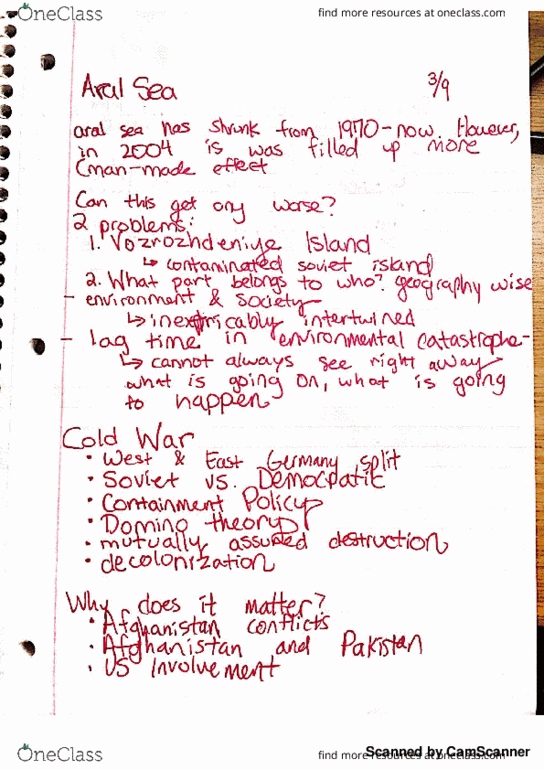 OneClass
find more resources at oneclass.com
Aral Sea
3/9
aral sea has shrunk from 1970-now. However,
in 2004 is was filled up more
(man-made effect
Can this get any worse?
2 problems:
1. Vozrozhdeniye Island
↳ contaminated soviet island
2. What part belongs to who? geography wise
- environment & society
↳ inextricably intertwined
- lag time in environmental catastrophe-
↳ cannot always see right away
what is going on, what is going
to happen
Cold War
• West & East Germany split
• Soviet vs. Democratic
• Containment Policy
• Domino theory
• mutually assured destruction
• decolonization
Why does it matter?
• Afghanistan conflicts
• Afghanistan and Pakistan
• US involvement
OneClass
find more resources at oneclass.com
Scanned by CamScanner